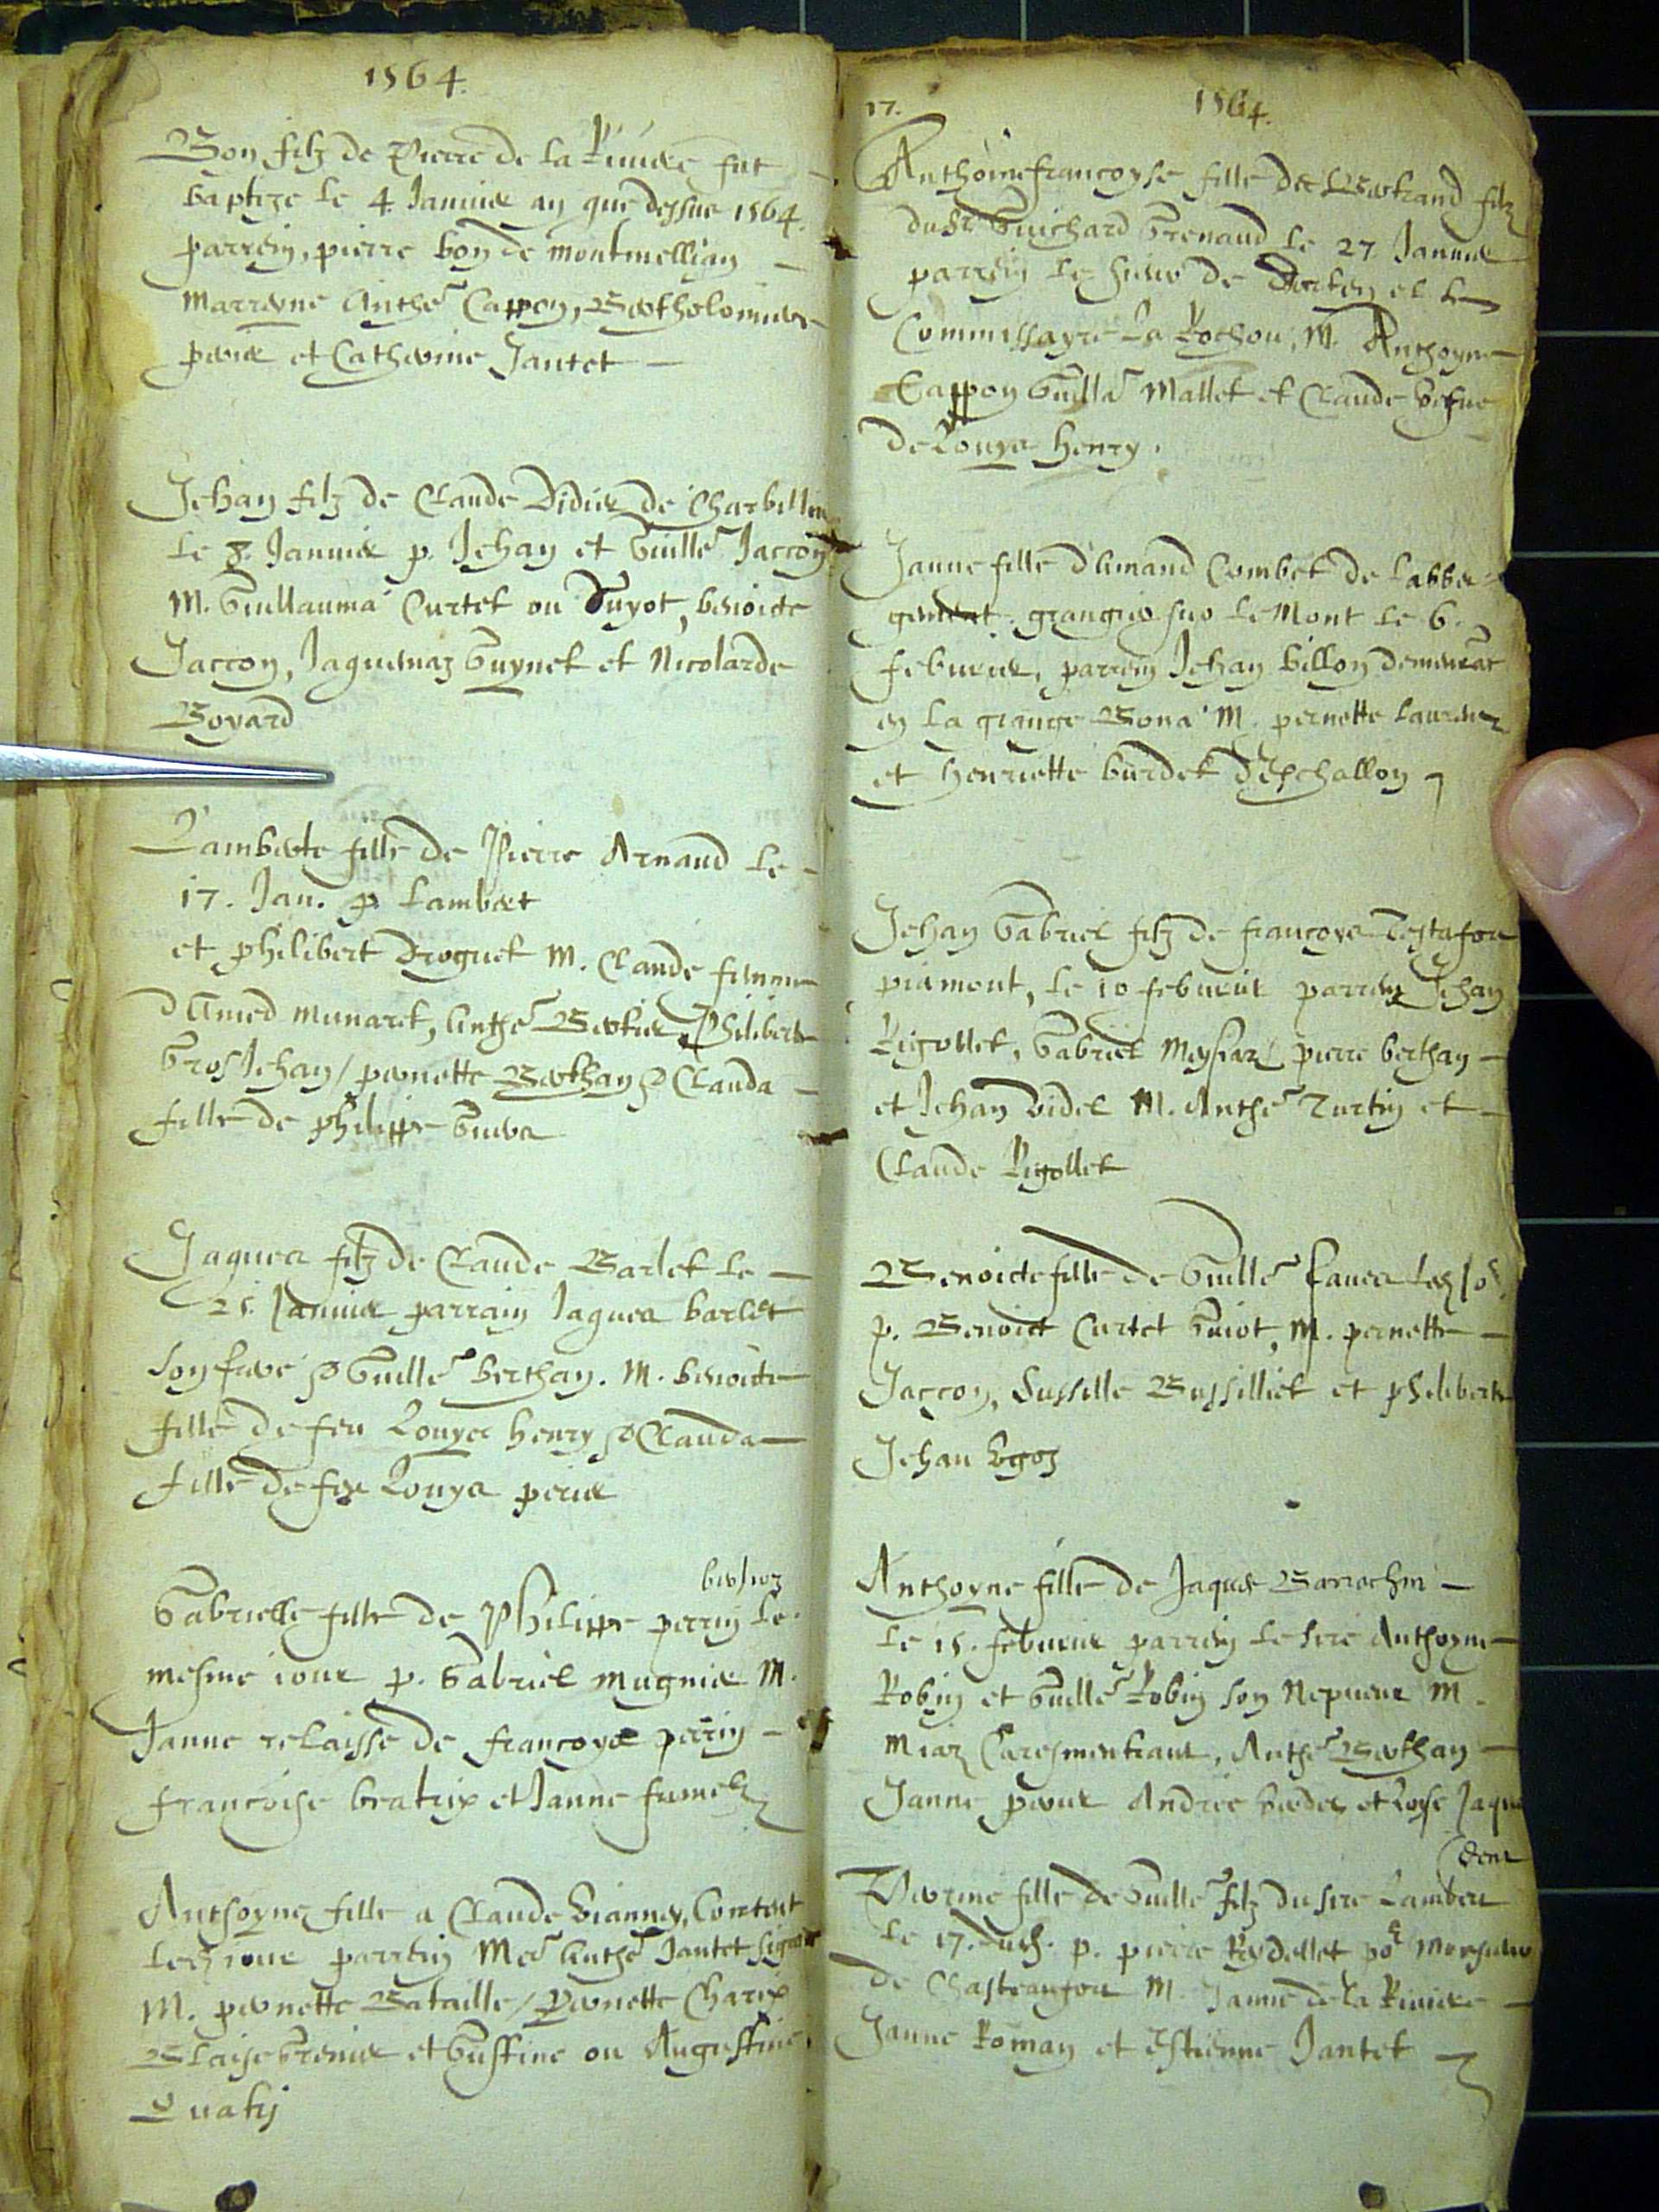 1564.
Bon filz de Pierre de la Riviere fut
baptize le 4. Janvier an que dessus 1564.
parrein, pierre bon de montmellian
marrayne Anthe Cappon, Bartholomiere
perier et Catherine Jantet
Jehan filz de Claude Didier de Charbillin
le 8. Janvier p. Jehan et Guille Jaccon
M. Guillauma Curtet ou Guyot, benoicte
Jaccon, Jaquemaz Guynet et Nicolarde
Bovard
Lamberte fille de Pierre Arnaud le
17. Jan. p. Lambert
et philibert Droguet M. Claude femme
d'Amed munaret, Anthe Bertier, Philiberte
Gros Jehan / pernette Berthan & Clauda
fille de philippe
Jaques filz de Claude Barlet le
25. Janvier parrain Jaques barlet
son frere & Guille berthan. M. benoicte
fille de feu Louys henry & Clauda
fille de feu Louys perier
Gabrielle fille de Philippe perrin le
mesme jour p. Gabriel mugnier M.
Janne relaisse de francoys perrin
francoise beatrix et Janne
Anthoyne fille a Claude Vianney, Content
led jour parrein Me Anthe Jantet
M. pernette Bataille / pernette Charix
Blaise Grenier et Gustine ou Augustine
17.
1564.
Anthoine francoyse fille de Bertrand filz
du Sr Guichard Grenaud le 27. Janvier
parrein le sieur de Dorten et le
Commissayre La Rochou, M. Anthoyne
Cappon Guilla Mallet et Claude vefve
de Louys henry.
Janne fille d'Amand Combet de labber-
gement. grangier sur le Mont le 6.
febvrier, parrein Jehan billon demeurat
en la grange Bona M. pernette Laurence
et henriette burdet d'Eschallon
Jehan Gabriel filz de francoys Testafort
piamont, le 10 febvrier parrein Jehan
Rigollet, Gabriel Meyssaz / pierre berthan
et Jehan Videl M. Anthe Turtin et
Claude Rigollet
Benoicte fille de Guille faure led jor.
p. Benoict Curtet Guiot, M. pernette
Jaccon, Sussille Bussilliet et philiberte
Jehan
Anthoyne fille de Jaques Barrochin
le 15. febvrier parrein le sire Anthoyne
Robin et Guille Robin son Nepveur M.
Miaz Caresmentrant, Anthe Berthan
Janne perier Andrée et Loyse Jaque
Pierrine fille de Guille filz du sire Lambert
le 17. p. pierre Reydellet po Monsieur
de Chasteaufort M. Janne de la Riviere
Janne Roman et Estienne Jantet